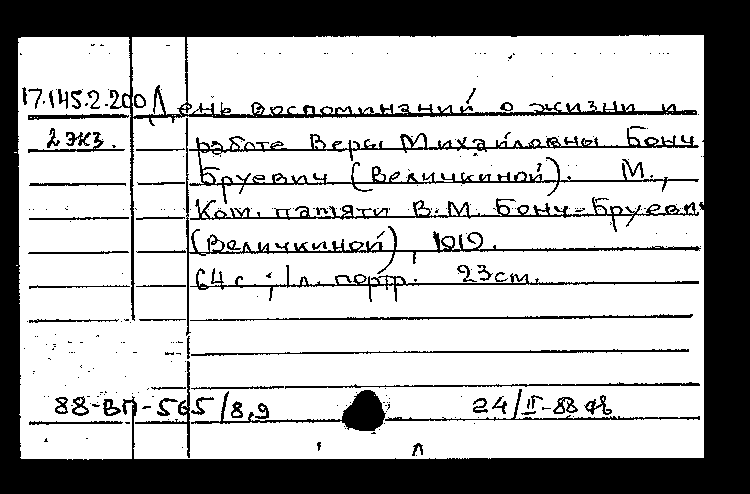 17.145.2.200 День воспоминаний о жизни и
2 экз. работе Веры Михайловны Бонч-
Бруевич (Величкиной). М.,
Ком. памяти В.М. Бонч-Бруевич
(Величкиной), 1919.
64 с.; 1 л. портр. 23 см.
88-ВП-565/8,9 24/II-88